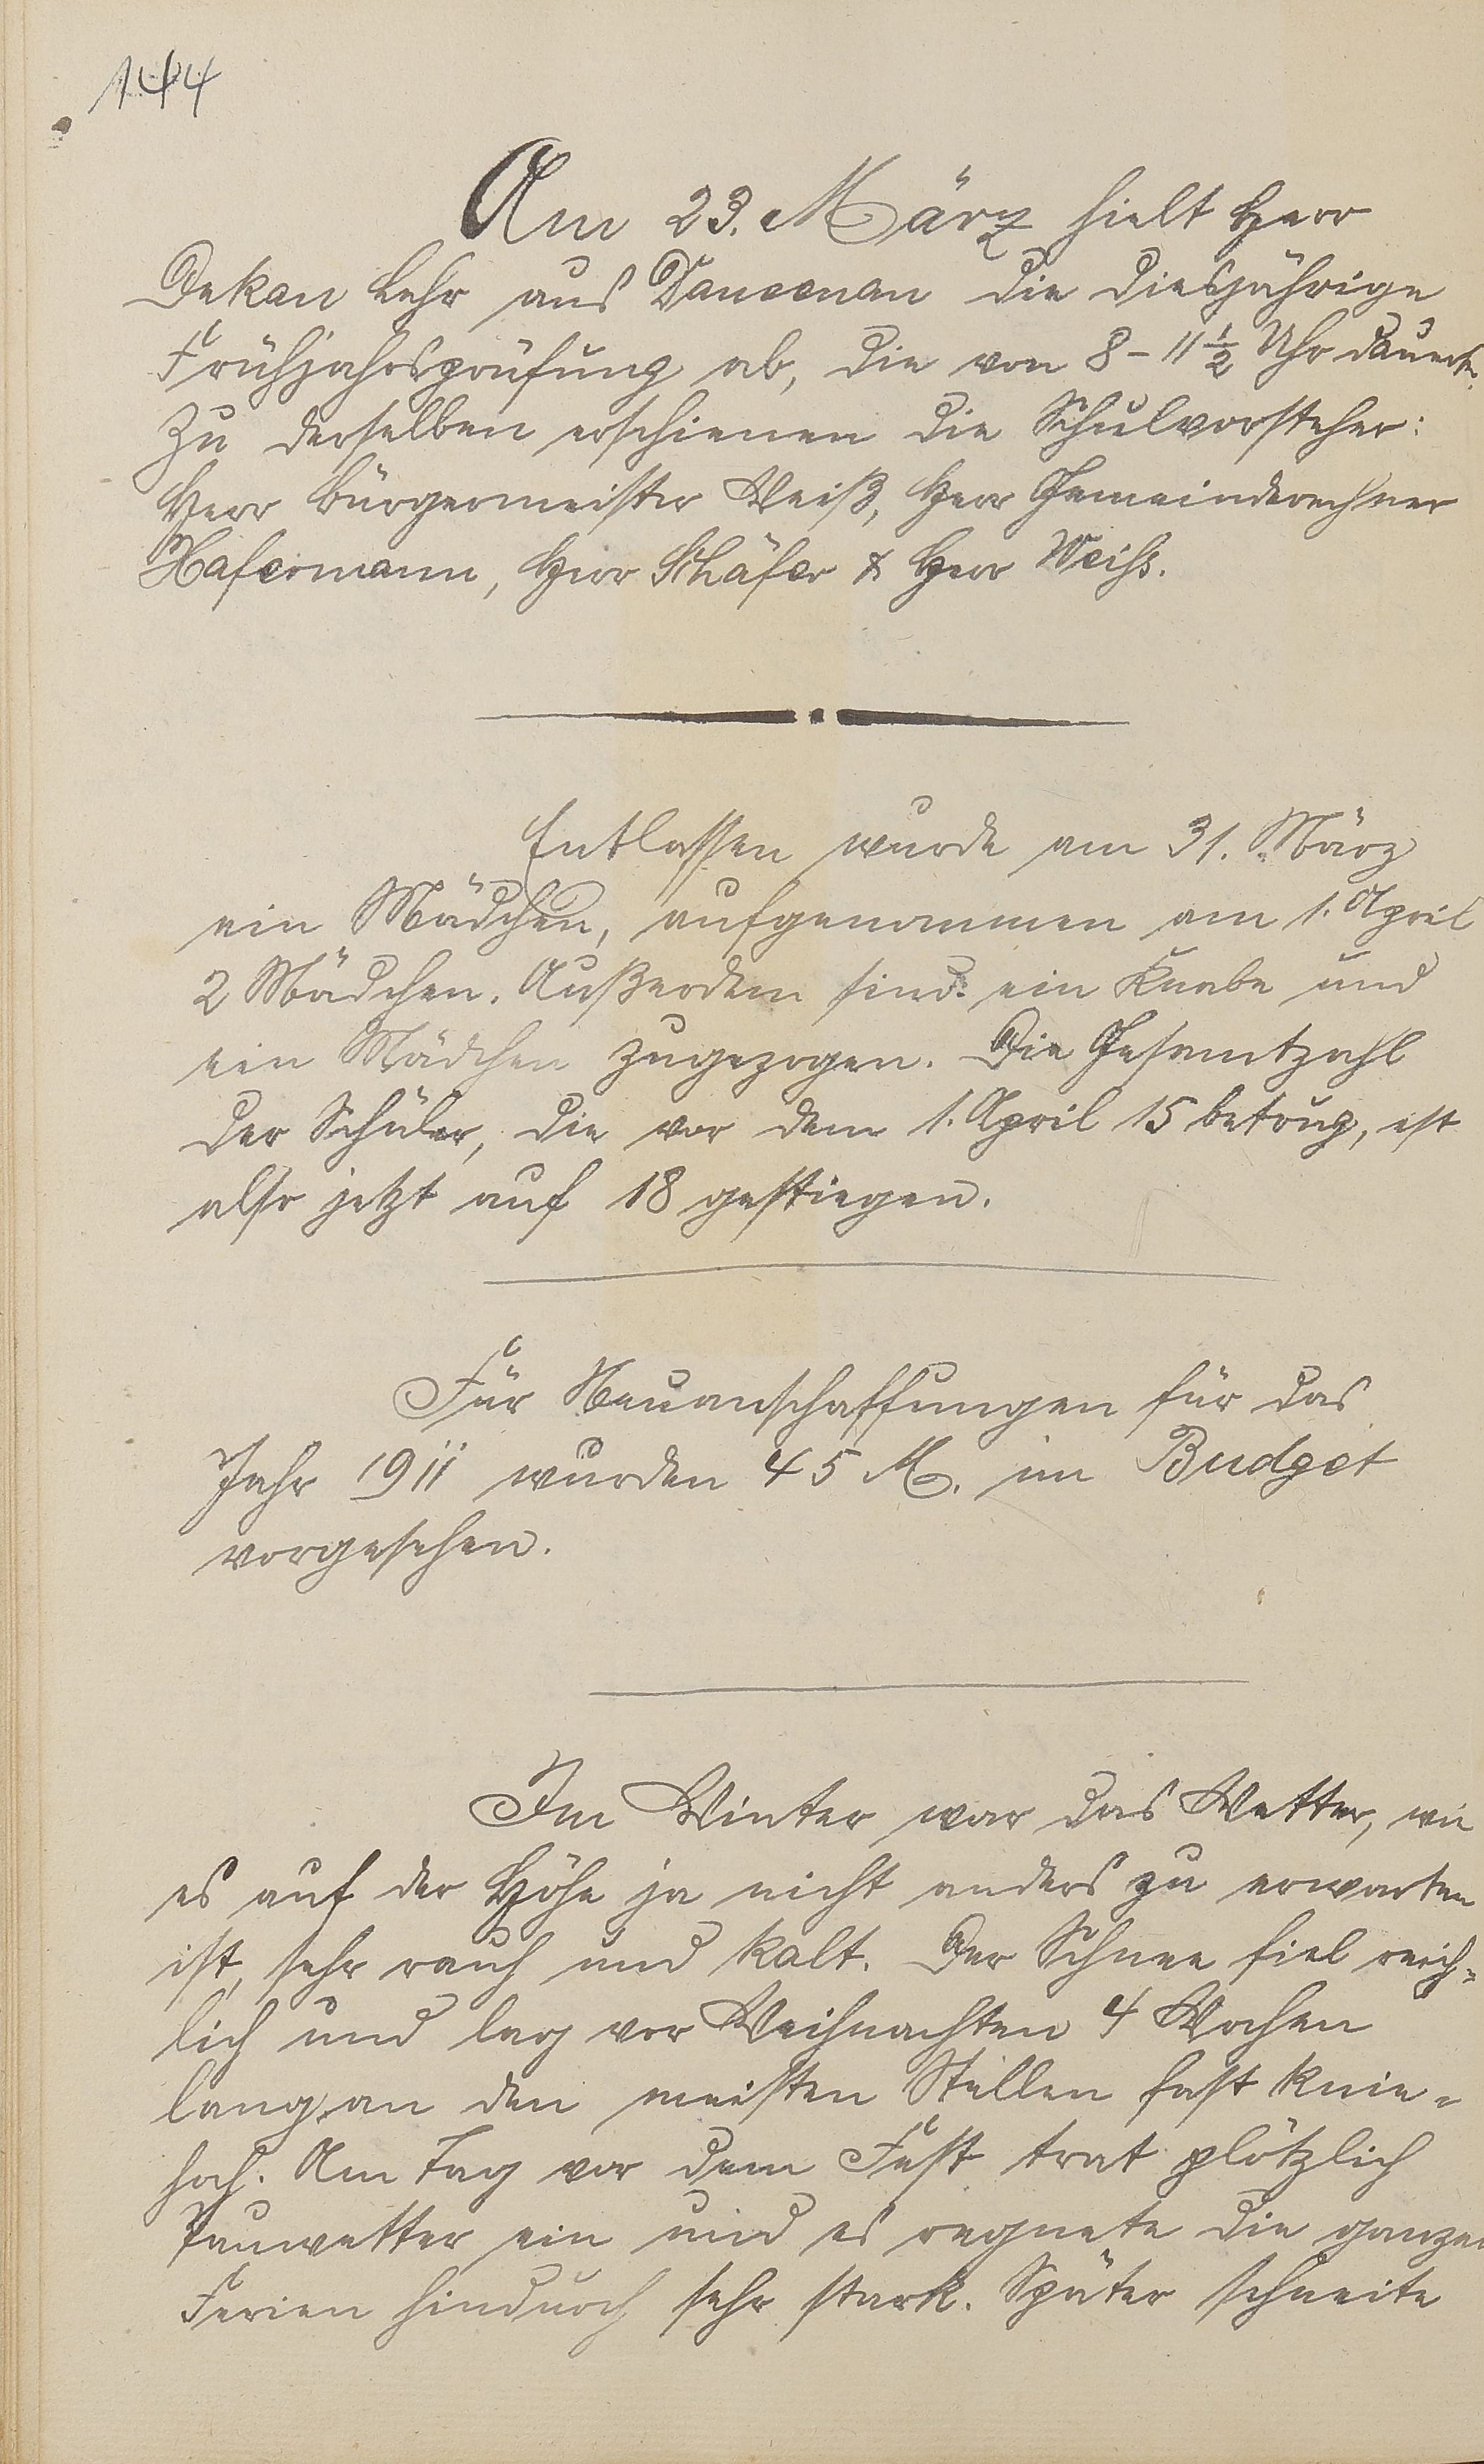 144
Am 23. März hielt Herr
Dekan Lehr aus die diesjährige
Frühjahrsprüfung ab, die von 8 – 11 1/2 Uhr dauerte.
Zu derselben erschienen die Schulvorsteher:
Herr Bürgermeister Weiß, Herr Gemeinderechner
Hafermann, Herr Schäfer & Herr Weiß.
Entlassen wurde am 31. März
ein Mädchen, aufgenommen am 1. April
2 Mädchen. Außerdem sind ein Knabe und
ein Mädchen zugezogen. Die Gesamtzahl
der Schüler, die vor dem 1. April 15 betrug, ist
also jetzt auf 18 gestiegen.
Für Neuanschaffungen für das
Jahr 1911 wurden 45 M. im Budget
vorgesehen.
Im Winter war das Wetter, wie
es auf der Höhe ja nicht anders zu erwarten
ist, sehr rauh und kalt. Der Schnee fiel reich-
lich und lag vor Weihnachten 4 Wochen
lang an den meisten Stellen fast knie-
hoch. Am Tag vor dem Fest trat plötzlich
Tauwetter ein und es regnete die ganzen
Ferien hindurch sehr stark. Später schneite